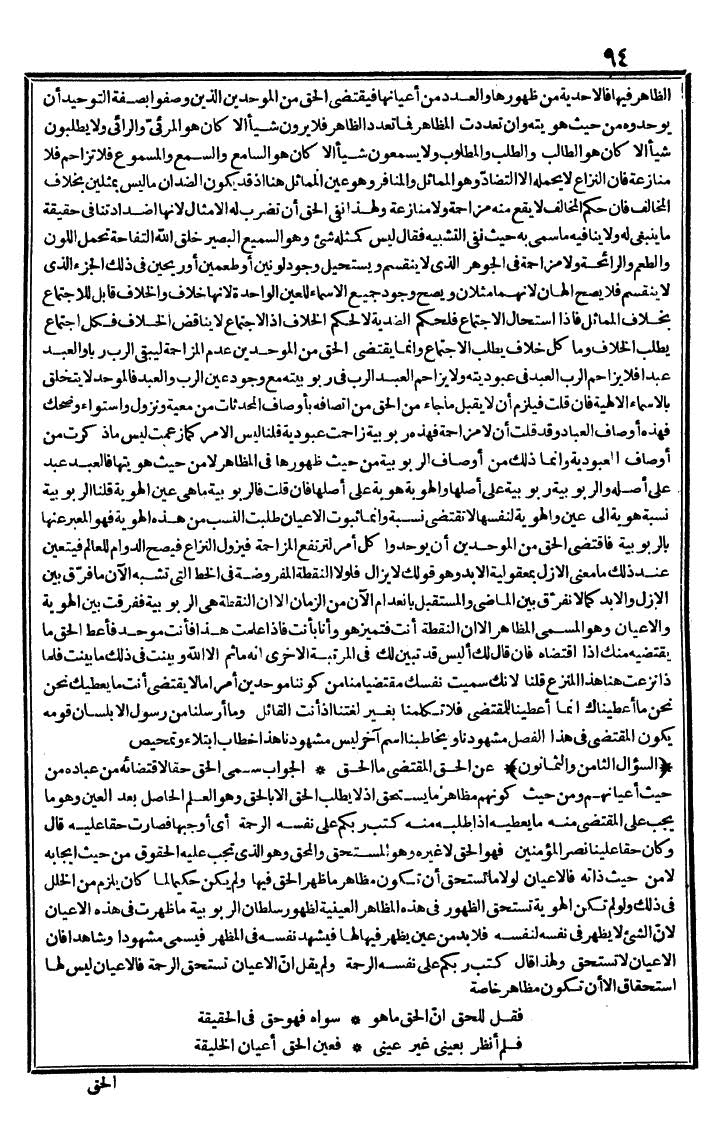 ٩٤
الظاهر فيها فالاحدية من ظهورها والعدد من أعيانها فيقتضى الحق من الموحدين الذين وصفوا بصفة التوحيد أن
يوحدوه من حيث هويته وان تعددت المظاهر فما تعدد الظاهر فلا يرون شيأ الا كان هو المرئىّ والرائى ولا يطلبون
شيأ الا كان هو الطالب والطلب والمطلوب ولا يسمعون شيأ الا كان هو السامع والسمع والمسموع فلا تزاحم فلا
منازعة فان النزاع لا يحمله الا التضادّ وهو المماثل والمنافر وهو عين المماثل هنا اذ قد يكون الضدان ماليس بمثلين بخلاف
المخالف فان حكم المخالف لا يقع منه مزاحمة ولا منازعة ولهذا نفى الحق أن تضرب له الامثال لانها اضداد تنافى حقيقة
ما ينبغى له ولا ينافيه ماسمى به حيث نفى التشبيه فقال ليس كمثله شئ وهو السميع البصير خلق الله التفاحة تحمل اللون
والطعم والرائحة ولا مزاحمة فى الجوهر الذى لا ينقسم ويستحيل وجود لونين أو طعمين أو ريحين فى ذلك الجزء الذى
لا ينقسم فلا يصح الهان لانهما مثلان ويصح وجود جميع الاسماء للعين الواحدة لانها خلاف والخلاف قابل للاجتماع
بخلاف المماثل فاذا استحال الاجتماع فلحكم الضدية لا لحكم الخلاف اذ الاجتماع لا يناقض الخلاف فكل اجتماع
يطلب الخلاف وما كل خلاف يطلب الاجتماع وانما يقتضى الحق من الموحدين عدم المزاحمة ليبقى الرب ربا والعبد
عبدا فلا يزاحم الرب العبد فى عبوديته ولا يزاحم العبد الرب فى ربوبيته مع وجود عين الرب والعبد فالموحد لا يتخلق
بالاسماء الالهية فان قلت فيلزم أن لا يقبل ماجاء من الحق من اتصافه بأوصاف المحدثات من معية ونزول واستواء وضحك
فهذه أوصاف العباد وقد قلت أن لا مزاحمة فهذه ربوبية زاحمت عبودية قلنا ليس الامر كما زعمت ليس ماذكرت من
أوصاف العبودية وانما ذلك من أوصاف الربوبية من حيث ظهورها فى المظاهر لا من حيث هويتها فالعبد عبد
على أصله والربوبية ربوبية على أصلها والهوية هوية على أصلها فان قلت فالربوبية ماهى عين الهوية قلنا الربوبية
نسبة هوية الى عين والهوية لنفسها لا تقتضى نسبة وانما ثبوت الاعيان طلبت النسب من هذه الهوية فهو المعبر عنها
بالربوبية فاقتضى الحق من الموحدين أن يوحدوا كل أمر لترتفع المزاحمة فيزول النزاع فيصح الدوام للعالم فيتعين
عند ذلك مامعنى الازل بمعقولية الابد وهو قولك لا يزال فلولا النقطة المفروضة فى الخط التى تشبه الآن مافرّق بين
الازل والابد كما لا نفرّق بين الماضى والمستقبل بانعدام الآن من الزمان الا ان النقطة هى الربوبية ففرقت بين الهوية
والاعيان وهو المسمى المظاهر الا ان النقطة أنت فتميز هو وأنا بأنت فاذا علمت هذا فأنت موحد فأعط الحق ما
يقتضيه منك اذا اقتضاه فان قال لك أليس قد تبين لك فى المرتبة الاخرى انه ماثم الا الله وبينت فى ذلك مابينت فلما
ذا نزعت هنا هذا المنزع قلنا لانك سميت نفسك مقتضيا منا من كوننا موحدين أمرا ما لا يقتضى أنت مايعطيك نحن
نحن ماأعطيناك انما أعطينا للمقتضى فلا تكلمنا بغير لغتنا اذ أنت القائل وماأرسلنا من رسول الا بلسان قومه
يكون المقتضى فى هذا الفصل مشهودنا ويخاطبنا اسم آخر ليس مشهودنا هذا خطاب ابتلاء وتمحيص
﴿السؤال الثامن والثمانون﴾ عن الحق المقتضى ماالحق * الجواب سمى الحق حقا لاقتضائه من عباده من
حيث أعيانهم ومن حيث كونهم مظاهر ما يستحق اذ لا يطلب الحق الا بالحق وهو العلم الحاصل بعد العين وهو ما
يجب على المقتضى منه مايعطيه اذا طلبه منه كتب ربكم على نفسه الرحمة أى أوجبها فصارت حقا عليه قال
وكان حقا علينا نصر المؤمنين فهو الحق لا غيره وهو المستحق والمحق وهو الذى تجب عليه الحقوق من حيث ايجابه
لا من حيث ذاته فالاعيان لولا ماتستحق أن تكون مظاهر ماظهر الحق فيها ولم يكن حكيما لما كان يلزم من الخلل
فى ذلك ولو لم تكن الهوية تستحق الظهور فى هذه المظاهر العينية لظهور سلطان الربوبية ماظهرت فى هذه الاعيان
لانّ الشئ لا يظهر فى نفسه لنفسه فلا بد من عين يظهر فيها لها فيشهد نفسه فى المظهر فيسمى مشهودا وشاهدا فان
الاعيان لا تستحق ولهذا قال كتب ربكم على نفسه الرحمة ولم يقل انّ الاعيان تستحق الرحمة فالاعيان ليس لها
استحقاق الا أن تكون مظاهر خاصة
فقل للحق انّ الحق ماهو * سواه فهو حق فى الحقيقة
فلم أنظر بعينى غير عينى * فعين الحق أعيان الخليقة
الحق